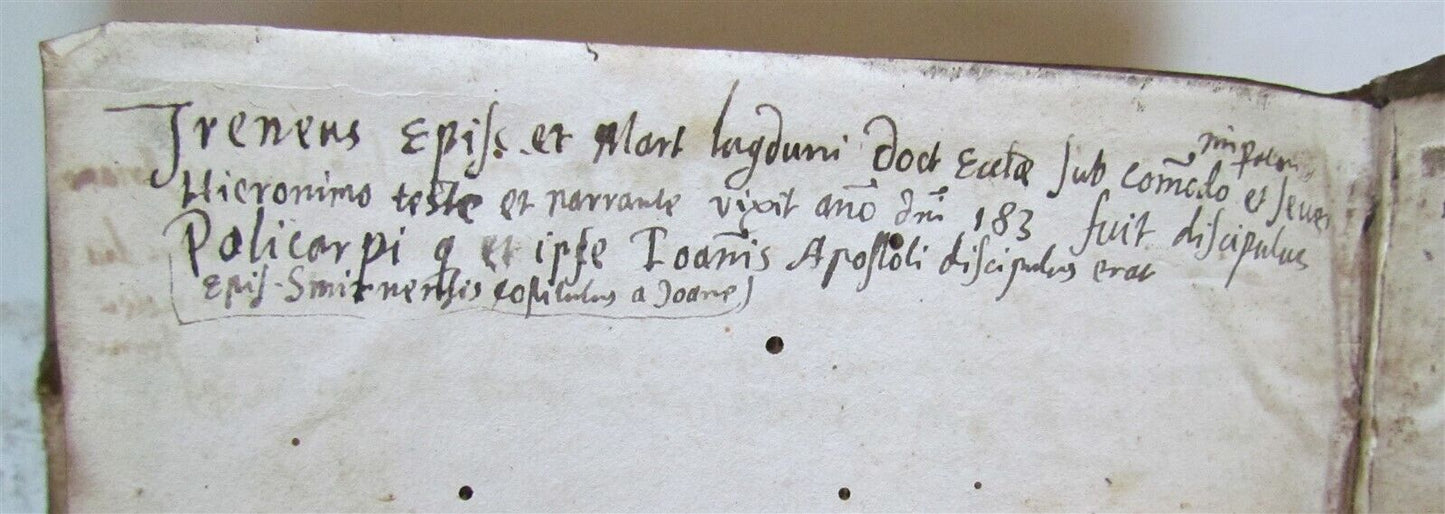 Ireneus Epiſc. et Mart lugduni Doct Eccłæ ſub com̃odo et ſeuer
Hieronimo teste et narrante vixit año dñi 183 fuit diſcipulus
Policarpi q et ipſe Ioañis Apoſtoli diſcipulus erat
Epiſ. Smirnensis coſtitutus a Joane)